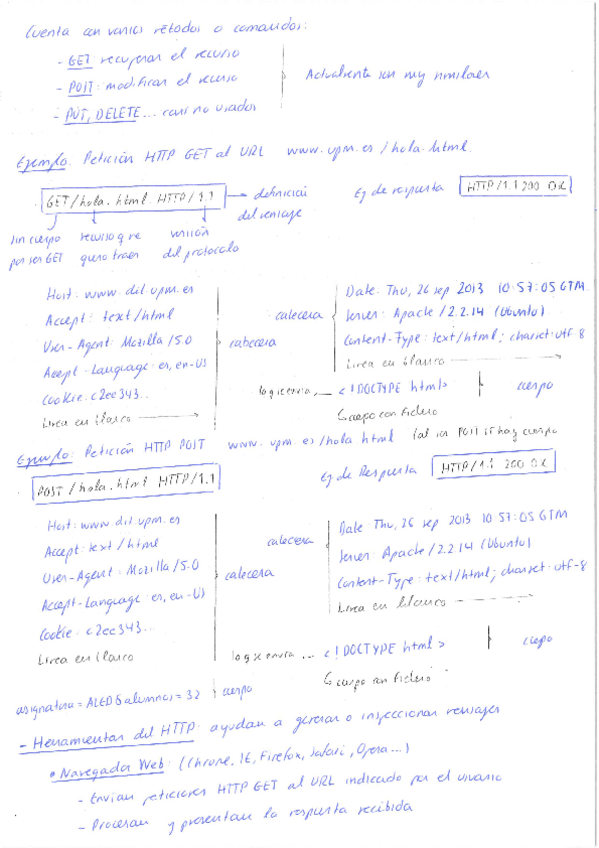 Cuenta con varios métodos o comandos:
- GET: recuperar el recurso
- POST: modificar el recurso
- PUT, DELETE... casi no usados
Actualmente son muy similares
Ejemplo: Petición HTTP GET al URL www.upm.es/hola.html
GET/hola.html HTTP/1.1
definición del mensaje
Ej de respuesta
HTTP/1.1 200 OK
sin cuerpo por ser GET
recurso que quiero traer
versión del protocolo
Host: www.dit.upm.es
Accept: text/html
User-Agent: Mozilla/5.0
Accept-Language: es, en-US
Cookie: c2ee343...
Linea en blanco
cabecera
cabecera
Date: Thu, 26 sep 2013 10:57:05 GTM
Server: Apache/2.2.14 (Ubuntu)
Content-Type: text/html; charset=utf-8
Linea en blanco
lo q se envia ... <!DOCTYPE html>
cuerpo
cuerpo con fichero
Ejemplo: Petición HTTP POST www.upm.es/hola html
POST si hay cuerpo
POST/hola.html HTTP/1.1
Ej de Respuesta
HTTP/1.1 200 OK
Host: www.dit.upm.es
Accept: text/html
User-Agent: Mozilla/5.0
Accept-Language: es, en-US
Cookie: c2ee343...
Linea en blanco
cabecera
asignatura=ALED&alumnos=32
cuerpo
cabecera
Date Thu, 26 sep 2013 10:57:05 GTM
Server: Apache/2.2.14 (Ubuntu)
Content-Type: text/html; charset=utf-8
Linea en blanco
lo q se envia ... <!DOCTYPE html>
cuerpo
cuerpo con fichero
- Herramientas del HTTP: ayudan a generar o inspeccionar mensajes
• Navegador Web: (Chrome, IE, Firefox, Safari, Opera...)
- Envían peticiones HTTP GET al URL indicado por el usuario
- Procesan y presentan la respuesta recibida